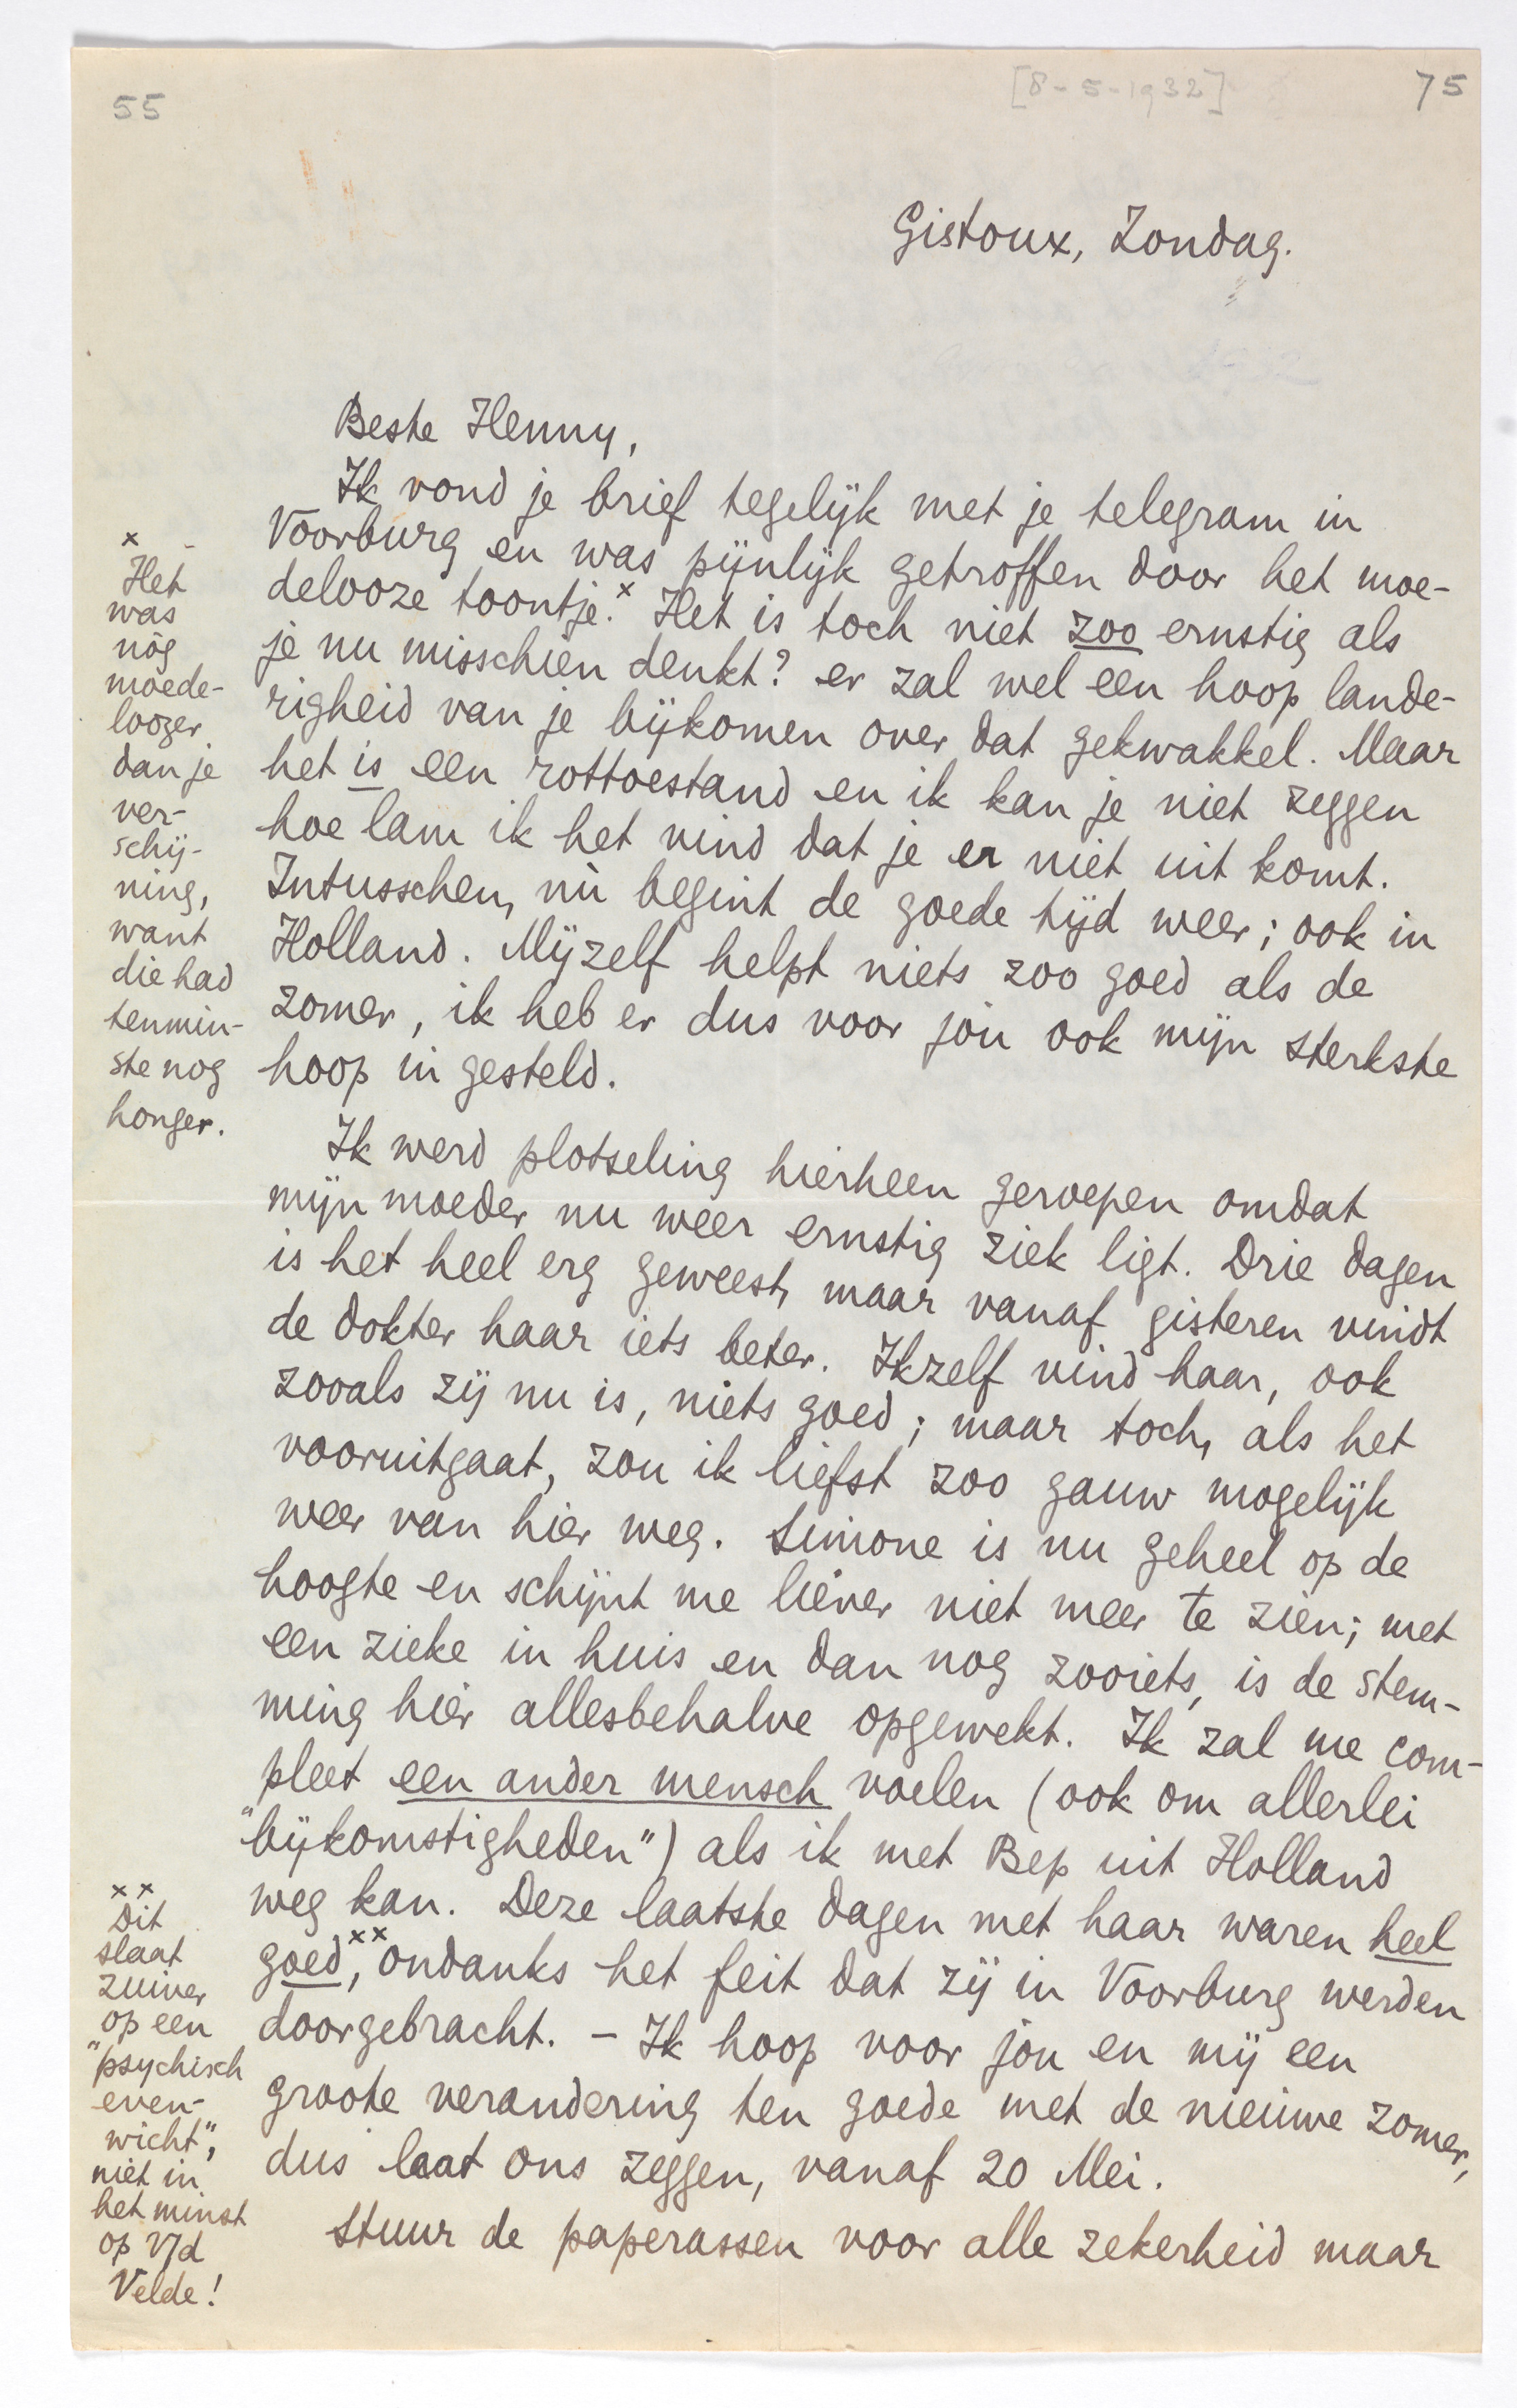 55
[8-5-1932]
75
Gistoux, Zondag.
Beste Henny,
Ik vond je brief tegelijk met je telegram in
Voorburg en was pijnlijk getroffen door het moe-
delooze toontje.x Het is toch niet zoo ernstig als
je nu misschien denkt? er zal wel een hoop lande-
righeid van je bijkomen over dat gekwakkel. Maar
het is een rottoestand en ik kan je niet zeggen
hoe lam ik het vind dat je er niet uit komt.
Intusschen, nù begint de goede tijd weer; ook in
Holland. Mijzelf helpt niets zoo goed als de
zomer, ik heb er dus voor jòu ook mijn sterkste
hoop in gesteld.
Ik werd plotseling hierheen geroepen omdat
mijn moeder nu weer ernstig ziek ligt. Drie dagen
is het heel erg geweest, maar vanaf gisteren vindt
de dokter haar iets beter. Ikzelf vind haar, ook
zooals zij nu is, niets goed; maar toch, als het
vooruitgaat, zou ik liefst zoo gauw mogelijk
weer van hier weg. Simone is nu geheel op de
hoogte en schijnt me liever niet meer te zien; met
een zieke in huis en dan nog zooiets, is de stem-
ming hier allesbehalve opgewekt. Ik zal me com-
pleet een ander mensch voelen (ook om allerlei
"bijkomstigheden") als ik met Bep uit Holland
weg kan. Deze laatste dagen met haar waren heel
goed,xx ondanks het feit dat zij in Voorburg werden
doorgebracht. – Ik hoop voor jou en mij een
groote verandering ten goede met de nieuwe zomer,
dus laat ons zeggen, vanaf 20 Mei.
Stuur de paperassen voor alle zekerheid maar
x
Het
was
nòg
moede-
loozer
dan je
ver-
schij-
ning,
want
die had
tenmin-
ste nog
honger.
xx
Dit
slaat
zuiver
op een
"psychisch
even-
wicht",
niet in
het minst
op v/d
Velde!